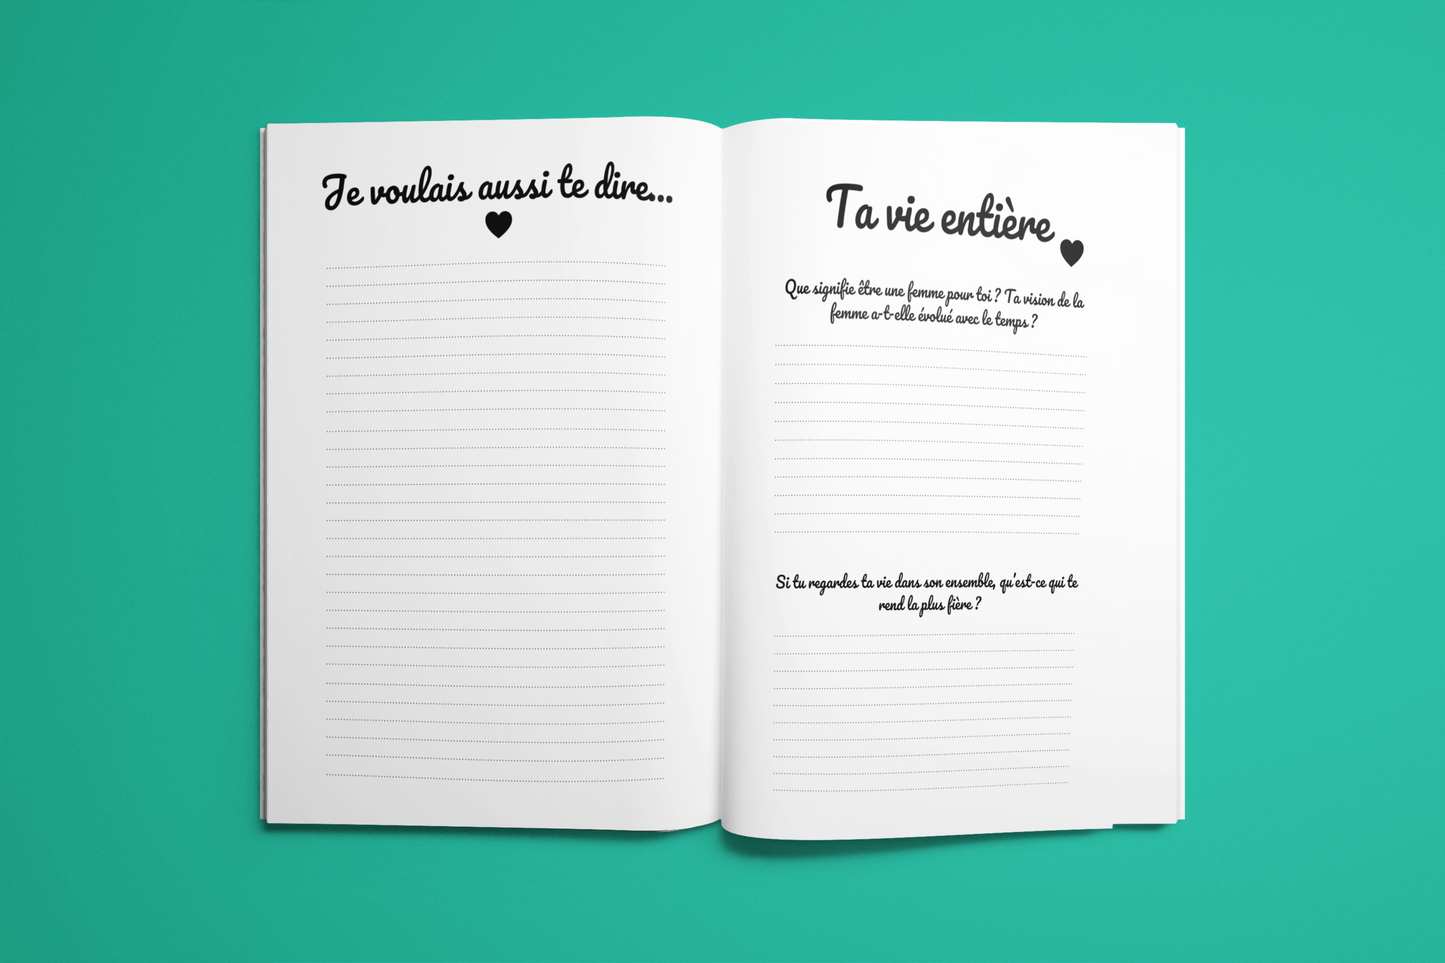 Je voulais aussi te dire...
Ta vie entière
Que signifie être une femme pour toi ? Ta vision de la
femme a-t-elle évolué avec le temps ?
Si tu regardes ta vie dans son ensemble, qu'est-ce qui te
rend la plus fière ?